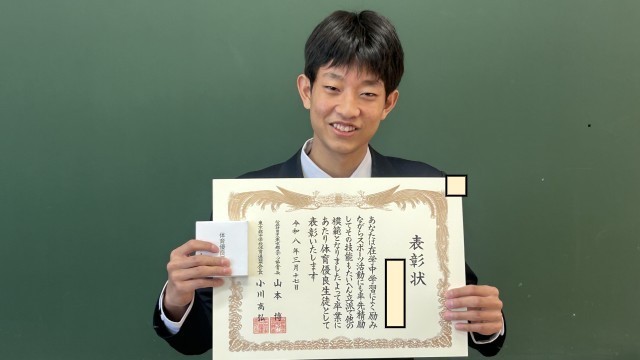 表彰状
あなたは在学中学習によく励み
ながらスポーツ活動にも率先精励
してその技能もたいへん立派で他の
模範となりましたよって卒業に
あたり体育優良生徒として
表彰いたします
令和八年三月十七日
山本 博
小川高弘
体育優